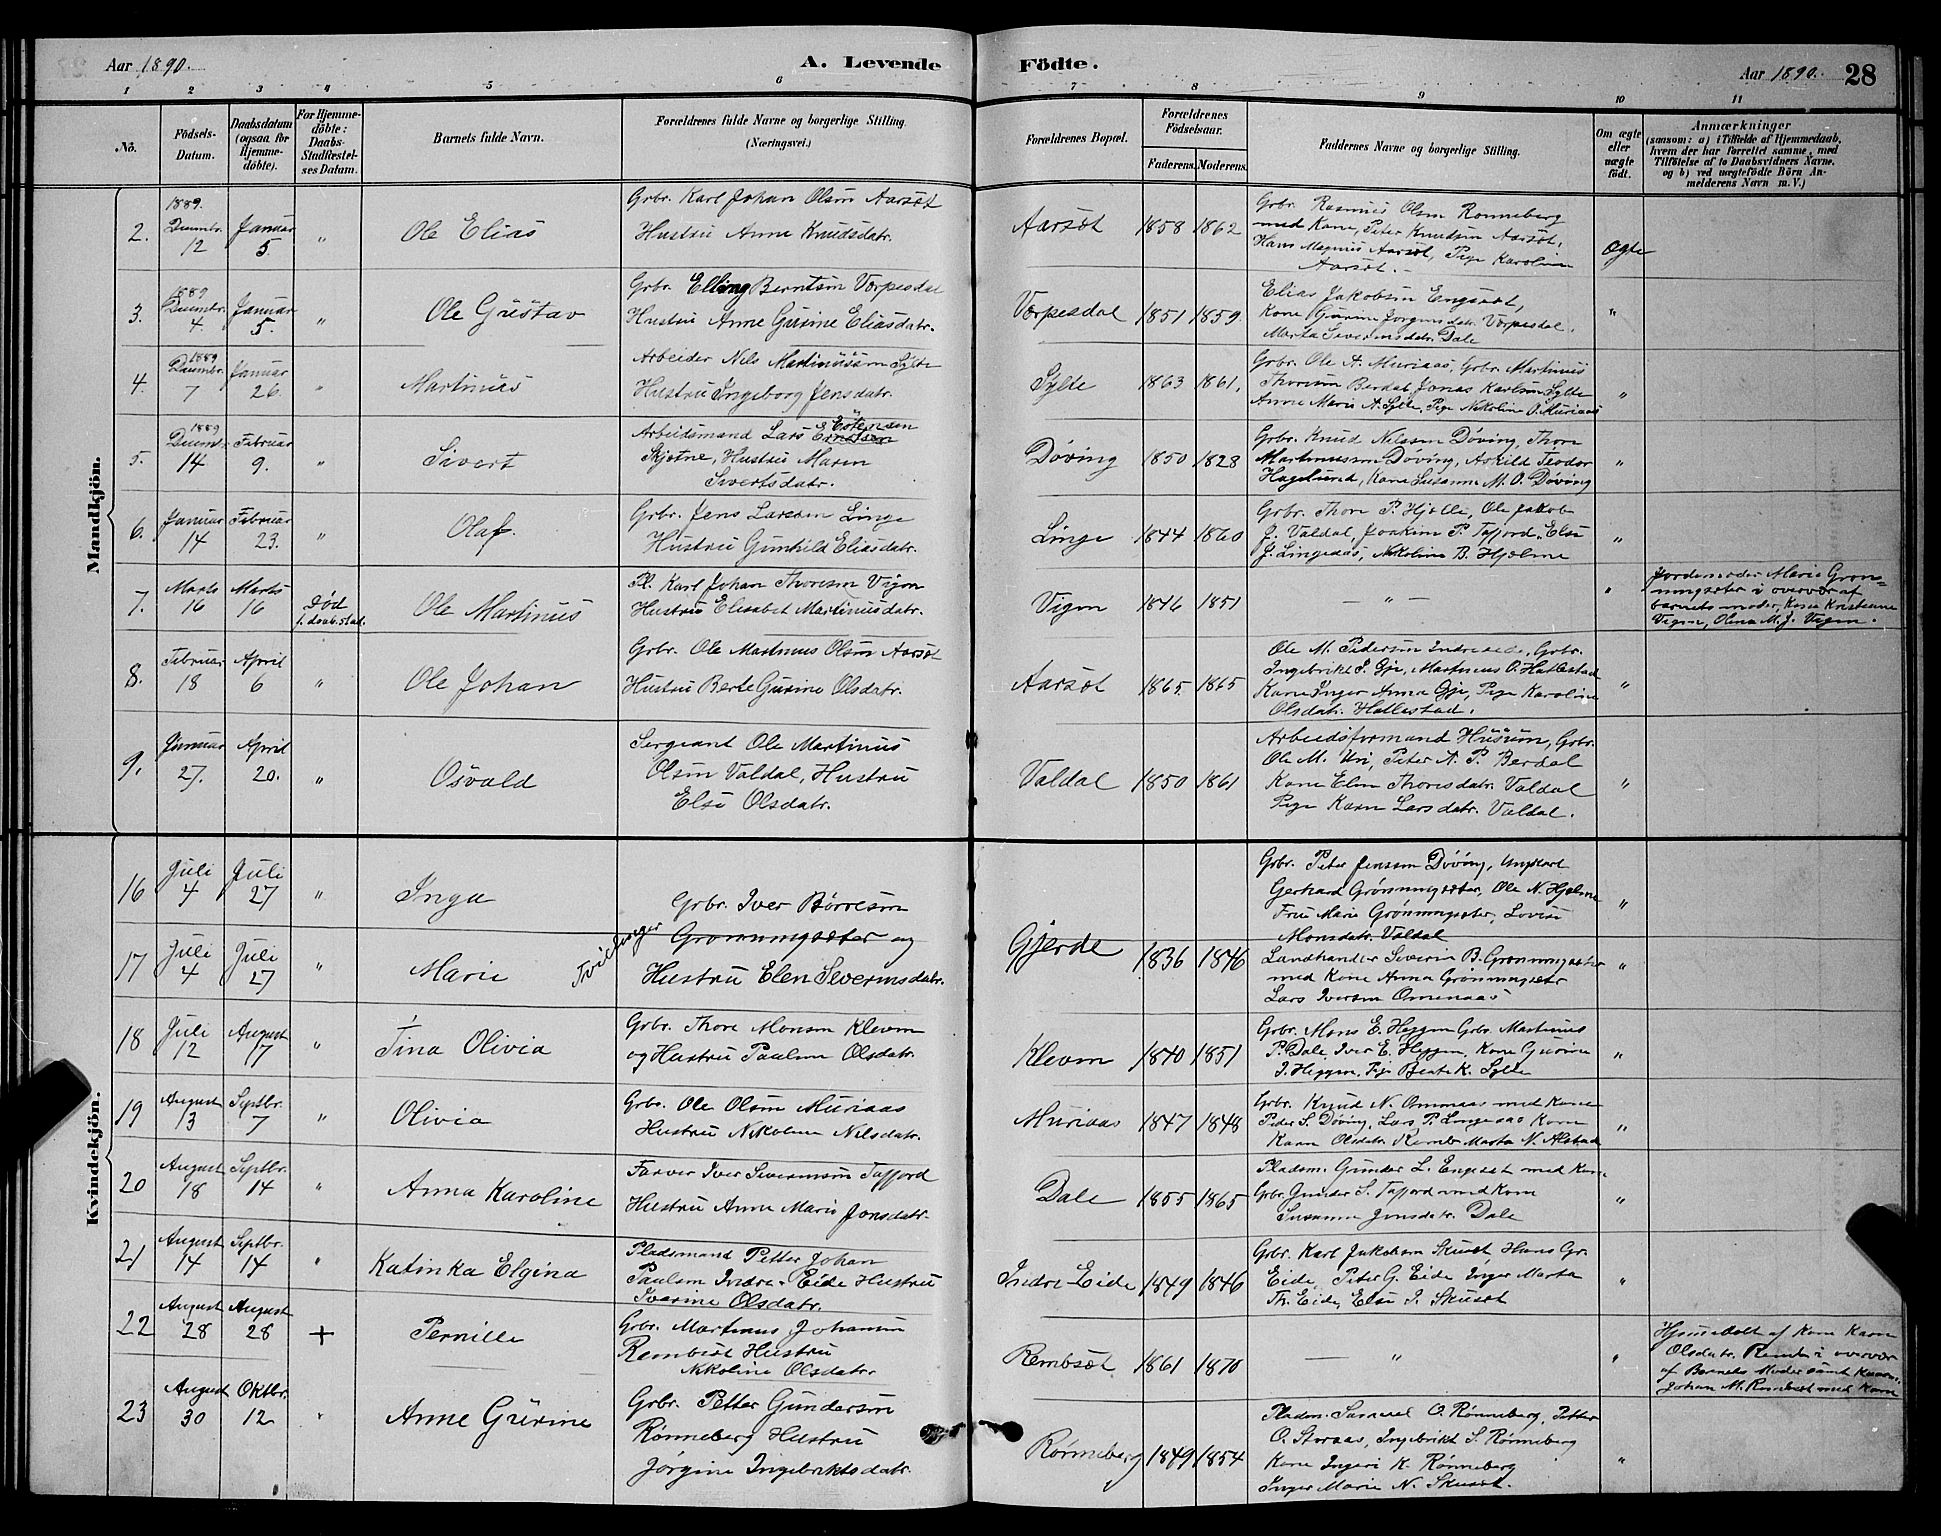 Aar 1890.
A. Levende
Födte.
Aar 1890.
28
1
2
3
4
5
6
7
8
9
10
11
No.
Födsels-
Datum.
Daabsdatum
(ogsaa for
Hjemme-
döbte).
For Hjemme-
döbte:
Daabs-
Stadfæstel-
ses Datum.
Barnets fulde Navn.
Forældrenes fulde Navne og borgerlige Stilling.
(Næringsvei.)
Forældrenes Bopæl.
Forældrenes
Födselsaar.
Faderens.
Moderens.
Faddernes Navne og borgerlige Stilling.
Om ægte
eller
uægte
födt.
Anmærkninger
(saasom: a) i Tilfælde af Hjemmedaab,
hvem der har forrettet samme, med
Tilföielse af to Daabsvidners Navne.
og b) ved uægtefödte Börn An-
melderens Navn m. V.)
Mandkjön.
2.
1889.
Decmbr.
12
Januar
5.
"
Ole Elias
Grbr. Karl Johan Olsen Aarsöt
Hustru Anne Knudsdatr.
Aarsöt
1858
1862
Grbr. Rasmus Olsen Rønneberg
med Kone, Peter Knudsen Aarsöt,
Hans Magnus Aarsöt, Pige Karoline
Aarsöt.
Ægte
3.
1889
Decmbr.
4
Januar
5.
"
Ole Gustav
Grbr. Elling Berntsen Vørpesdal
Hustru Anne Gurine Eliasdatr.
Vørpesdal
1851
1859
Elias Jakobsen Engesæt,
Kone Gurine Jørgensdatr. Vørpesdal.
Marta Severinsdatr. Dale
"
4.
1889
Decmbr.
7
Januar
26.
"
Martinus
Arbeider Nils Martinussen Sylte
Hustru Ingeborg Jensdatr.
Sylte
1863
1861.
Grbr. Ole A. Muriaas, Grbr. Martinus
Thoresen Berdal, Jonas Karlsen Sylte
Anne Marie A. Sylte, Pige Nikoline O. Muriaas
"
5.
1889
Decmb.
14
Februar
9.
"
Sivert
Arbeidsmand Lars Estensen
Skjetne, Hustru Maren
Sivertsdatr.
Døving
1850
1828
Grbr. Knud Nilssen Døving, Thore
Martinussen Døving, Askild Teodor
Hagelund, Kone Susanne M. O. Døving
"
6.
Januar
14
Februar
23.
"
Olaf.
Grbr. Jens Larssen Linge
Hustru Gunhild Eliasdatr.
Linge
1844
1860
Grbr. Thore P. Hjelle, Ole Jakob
J. Valdal, Joakim P. Tafjord, Else
J. Lingeaas, Nikoline B. Hjelme
"
7.
Marts
16
Marts
16
Død
f. daab. stad.
Ole Martinus
Pl. Karl Johan Thoresen Vigen
Hustru Elisabet Martinusdatr.
Vigen
1846
1851
— " —
"
Jordemoder Marie Grøn-
ningsæter i overvær af
barnets moder, Kone Kristiane
Vigen, Olina M. J. Vigen.
8.
Februar
18
April
6
"
Ole Johan
Grbr. Ole Martinus Olsen Aarsöt
Hustru Berte Gurine Olsdatr.
Aarsöt
1865.
1865
Ole M. Pedersen Indreeide, Grbr.
Ingebrikt S. Gje, Martinus O. Hallestad
Kone Inger Anna Gje, Pige Karoline
Olsdatr. Hallestad.
"
9.
Januar
27.
April
20.
"
Osvald
Sergeant Ole Martinus
Olsen Valdal, Hustru
Else Olsdatr.
Valdal
1850
1861
Arbeidsformand Husum, Grbr.
Ole M. Uri, Peter A. P. Berdal
Kone Elen Thoresdatr. Valdal
Pige Karen Larsdatr. Valdal.
"
Kvindekjön.
16
Juli
4
Juli
27
"
Inga
Grbr. Iver Børresen
Grønningsæter og
Hustru Elen Severinsdatr.
Gjerde
1836
1846
Grbr. Peter Jenssen Døving, Ungkarl
Gerhard Grønningsæter, Ole N. Hjelme
Fru Marie Grønningsæter, Lovise
Monsdatr. Valdal
"
17
Juli
4
Juli
27
"
Marie
Tvillinger
Landhandler Severin B. Grønningsæter
med Kone Anna Grønningsæter
Lars Iversen Omenaas
"
18
Juli
12
August
17
"
Tina Olivia
Grbr. Thore Monsen Kleven
og Hustru Pauline Olsdatr.
Kleven
1840
1851
Grbr. Mons E. Heggen Grbr. Martinus
P. Dale, Iver E. Heggen, Kone Gurine
I. Heggen, Pige Beate K. Sylte
"
19
August
13
Septbr.
7
"
Olivia
Grbr. Ole Olsen Muriaas
Hustru Nikoline Nilsdatr.
Muriaas
1847
1848
Grbr. Knud N. Omenaas med Kone
Peder S. Døving, Lars P. Lingeaas Kone
Karen Olsdatr. Marta N. Alstad
"
20
August
18
Septbr.
14
"
Anna Karoline
Farver Iver Severinsen Tafjord
Hustru Anne Marie Jonsdatr.
Dale
1855
1865
Pladsm. Gunder L. Engeset med Kone
Grbr. Gunder S. Tafjord med Kone
Susanna Jensdatr. Dale
"
21
August
14
Septbr.
14
"
Katinka Elgina
Pladsmand Petter Johan
Paulsen Indre-Eide Hustru
Iverine Olsdatr.
Indre Eide
1849
1846
Grbr. Karl Jakobsen Skuset, Hans Gr.
Eide, Peter G. Eide, Inger Marta
Th. Eide, Else I. Skuset
"
22
August
28
August
28
+
Pernille
Grbr. Martinus Johansen
Rembsöt Hustru
Nikoline Olsdatr.
Rembsöt
1861
1870
— " —
"
Hjemedøbt af Kone Karen
Olsdatr. i overvær
af Barnets Moder samt
Johan M. Rembsöt med Kone
23
August
30
Oktbr.
12
"
Anne Gurine
Grbr. Petter Gundersen
Rønneberg Hustru
Jørgine Ingebriktsdatr.
Rønneberg
1849
1854
Pladsm. Samuel O. Rønneberg, Petter
O. Storaas, Ingebrikt S. Rønneberg
Kone Ingeri K. Rønneberg
Inger Marie N. Skuset.
"